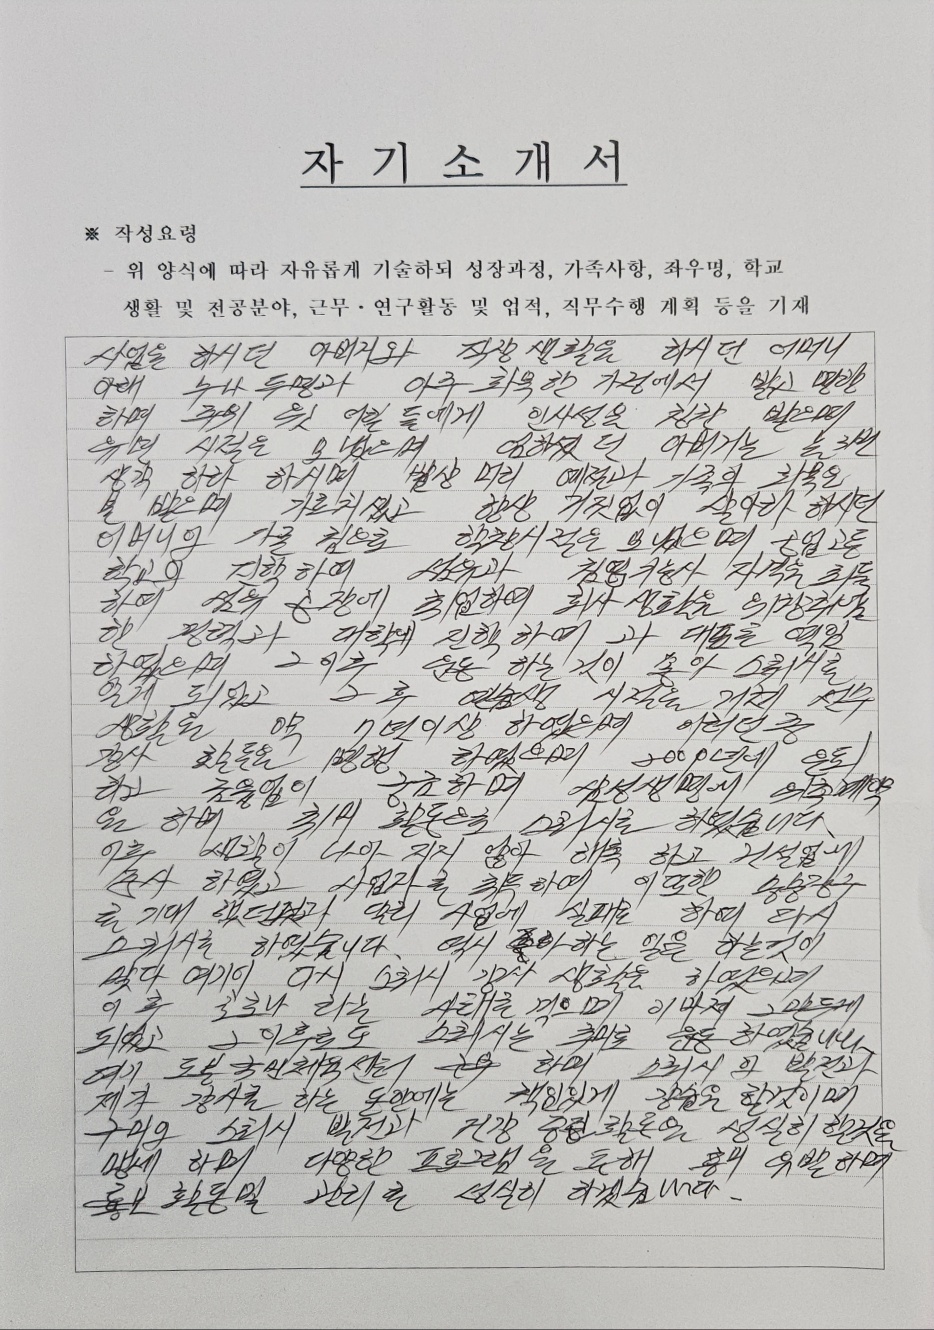 자 기 소 개 서
※ 작성요령
- 위 양식에 따라 자유롭게 기술하되 성장과정, 가족사항, 좌우명, 학교
생활 및 전공분야, 근무·연구활동 및 업적, 직무수행 계획 등을 기재
사업을 하시던 아버지와 직장생활을 하시던 어머니
아래 누나 두명과 아주 화목한 가정에서 밝고 명랑
하며 주위 웃 어른들에게 인사성을 칭찬 받으며
유년 시절을 보냈으며 엄하셨던 아버지는
생각 하라 하시며 밥상 머리 예절과 가족의 화목을
받으며 가르치셨고 항상 거짓없이 살아라 하시던
어머니의 학창시절을 보냈으며 공업고등
학교의 진학하여 섬유과 자격을 취득
하여 섬유 공장에 취업하여 회사생활을
한 대학에 진학하여 과 대표를 역임
하였으며 그 이후 운동 하는것이 좋아 스쿼시를
알게 되었고 그 후 연습생 시절을 거쳐 선수
생활을 약 7년이상 하였으며 어허던중
강사 활동을 병행 하였으며 2000년에 은퇴
하고 궁금하며 삼성생명에
을 하며 취미 활동으로 스쿼시를 하였습니다.
이후 생활이 나아 지지 않아 하고 건설업에
종사 하였고 사업자를 취득하여 이또한 승승장구
를 기대 했던것과 달리 사업에 실패를 하여 다시
스쿼시를 하였습니다. 역시 좋아하는 일을 하는것이
맞다 여기어 다시 스쿼시 강사 생활을 하였으며
이후 코로나 라는 사태를 겪으며 이마저 그만두게
되었고 그 이후로도 스쿼시는 취미로 운동 하였습니다.
여기 국민체육센터 근무 하며 스쿼시의 발전과
제가 강사를 하는 동안에는 책임있게 강습을 할것이며
구미의 스쿼시 발전과 건강 증진 활동을 성실히 할것을
맹세 하며 다양한 프로그램을 통해 흥미 유발하며
홍보 활동및 관리를 성실히 하겠습니다.